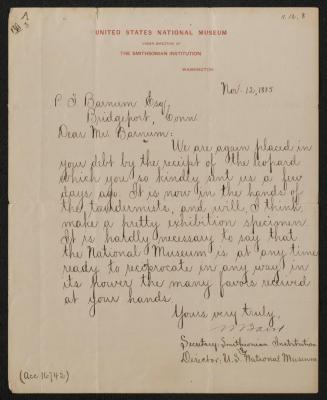 11.12.8
UNITED STATES NATIONAL MUSEUM
UNDER DIRECTION OF
THE SMITHSONIAN INSTITUTION
WASHINGTON
Nov. 12, 1885
P T Barnum Esq,
Bridgeport, Conn
Dear Mr. Barnum:
We are again placed in
your debt by the receipt of the leopard
which you so kindly sent us a few
days ago. It is now in the hands of
the taxidermists, and will, I think,
make a pretty exhibition specimen
It is hardly necessary to say that
the National Museum is at any time
ready to reciprocate in any way in
its power the many favors received
at your hands.
Yours very truly,
Baird
Secretary, Smithsonian Institution
Director, U.S. National Museum
(Acc 16742)